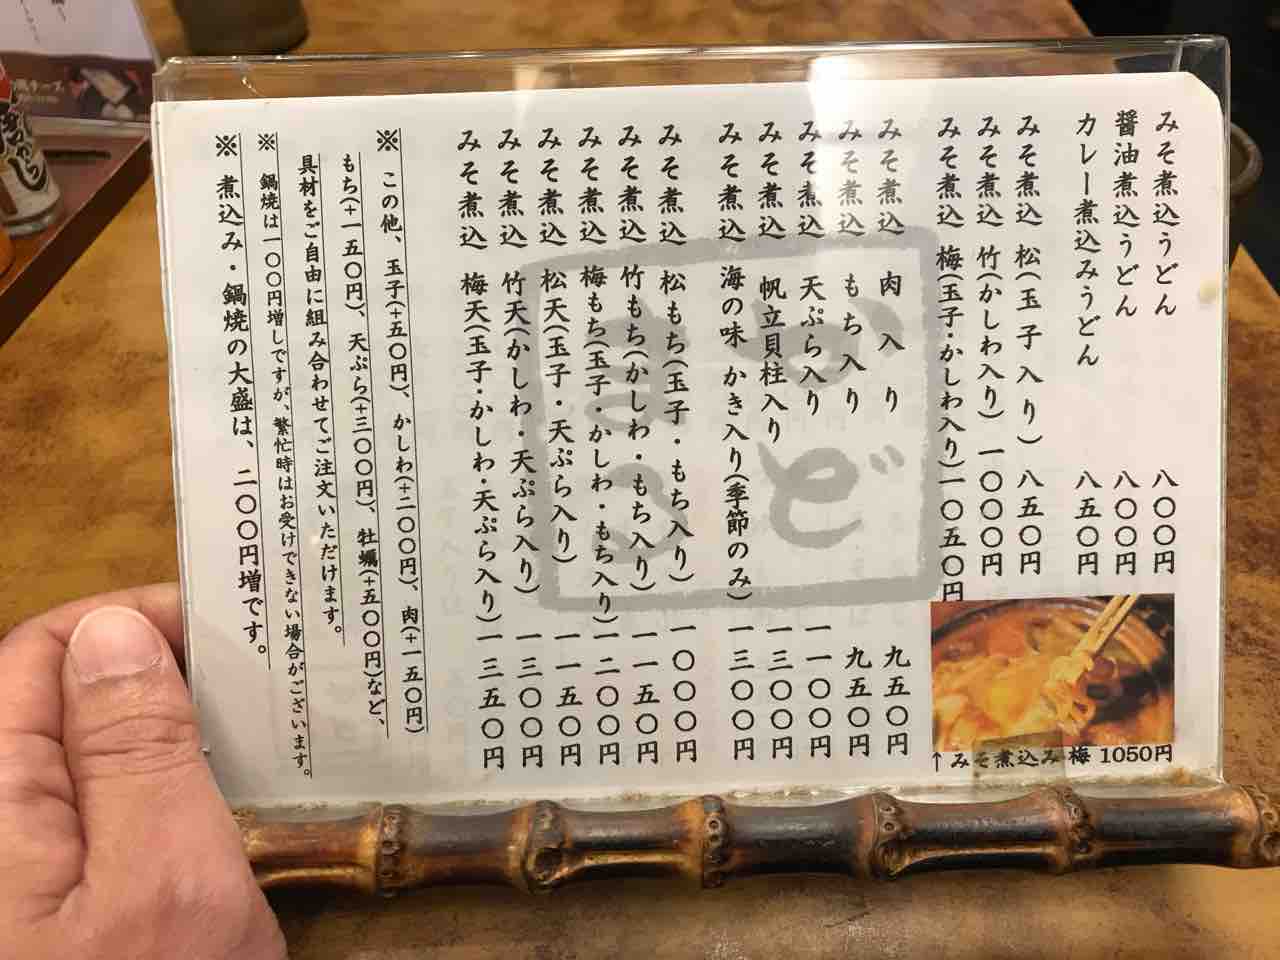 みそ煮込うどん 八〇〇円
醤油煮込うどん 八〇〇円
カレー煮込みうどん 八五〇円
みそ煮込 松(玉子入り) 八五〇円
みそ煮込 竹(かしわ入り) 一〇〇〇円
みそ煮込 梅(玉子・かしわ入り) 一〇五〇円
↑みそ煮込み梅 1050円
みそ煮込 肉入り 九五〇円
みそ煮込 もち入り 九五〇円
みそ煮込 天ぷら入り 一一〇〇円
みそ煮込 帆立貝柱入り 一三〇〇円
みそ煮込 海の味 かき入り(季節のみ) 一三〇〇円
みそ煮込 松もち(玉子・もち入り) 一〇〇〇円
みそ煮込 竹もち(かしわ・もち入り) 一一五〇円
みそ煮込 梅もち(玉子・かしわ・もち入り) 一二〇〇円
みそ煮込 松天(玉子・天ぷら入り) 一一五〇円
みそ煮込 竹天(かしわ・天ぷら入り) 一三〇〇円
みそ煮込 梅天(玉子・かしわ・天ぷら入り) 一三五〇円
※ この他、玉子(+五〇円)、かしわ(+二〇〇円)、肉(+一五〇円)
もち(+一五〇円)、天ぷら(+三〇〇円)、牡蠣(+五〇〇円)など、
具材をご自由に組み合わせてご注文いただけます。
※ 鍋焼は一〇〇円増しですが、繁忙時はお受けできない場合がございます。
※ 煮込み・鍋焼の大盛は、二〇〇円増です。
かど
まる